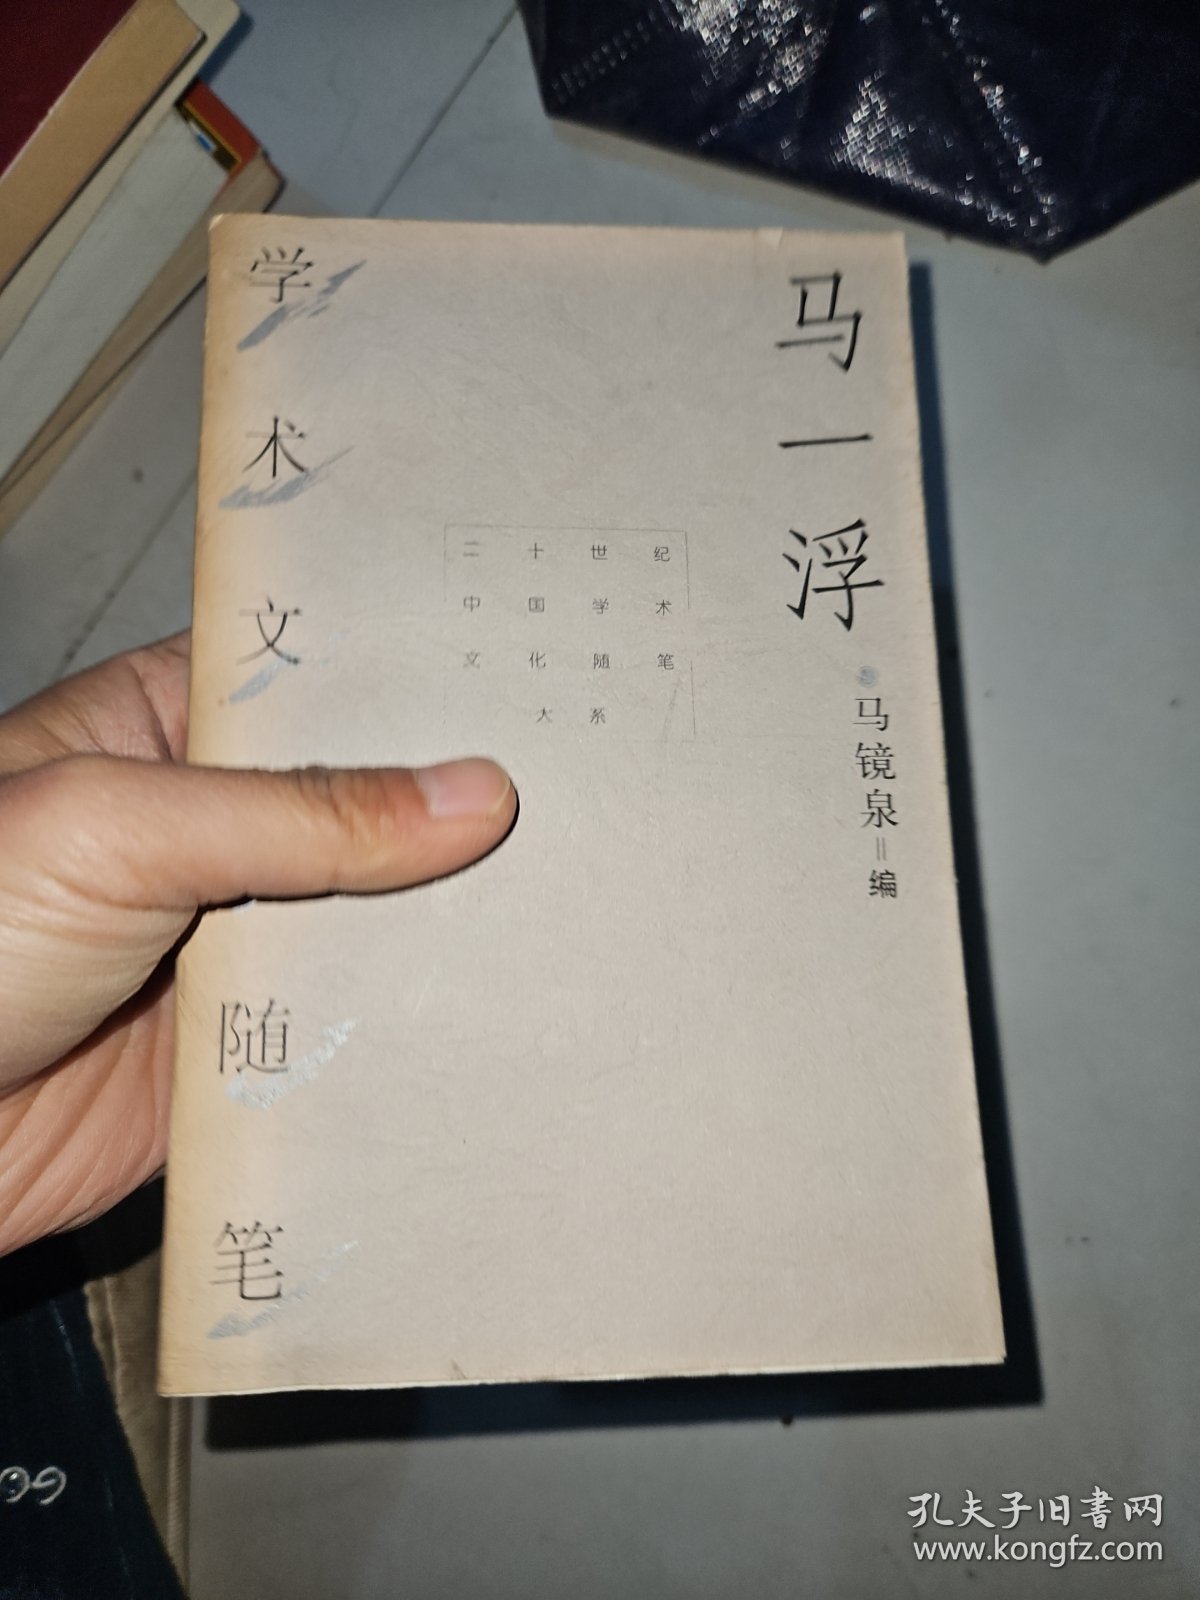 马一浮
马镜泉=编
学术文
随笔
二十世纪
中国学术
文化随笔
大系
孔夫子旧書网
www.kongfz.com